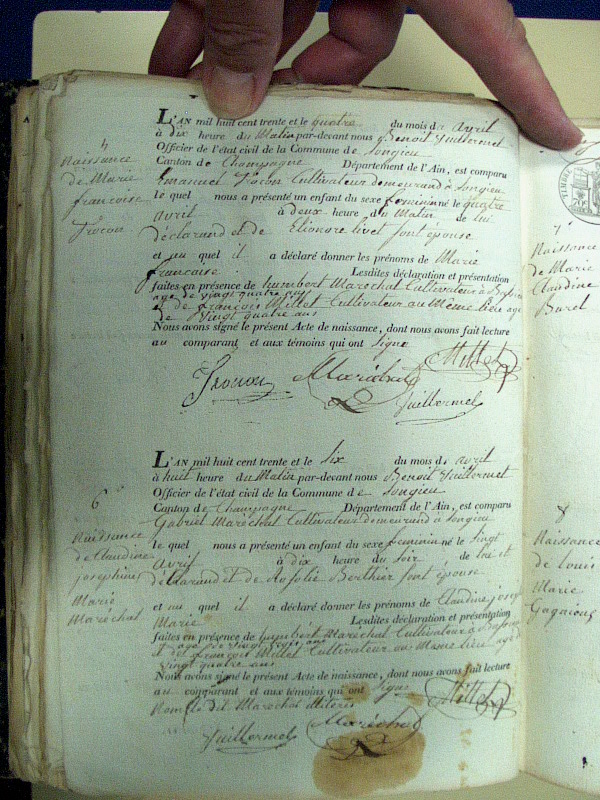 L'AN mil huit cent trente et le quatre du mois de avril
à dix heure du Matin par-devant nous Benoit Vuillermet
Officier de l'état civil de la Commune de Songieu
Canton de Champagne Département de l'Ain, est comparu
Emanuel Trocon Cultivateur demeurand à Songieu
le quel nous a présenté un enfant du sexe feminin né le quatre
avril à deux heure du Matin de lui
déclarand et de Elionore livet sont épouse
et au quel il a déclaré donner les prénoms de Marie
francoise Lesdites déclaration et présentation
faites en présence de humbert Marechal Cultivateur à
age de vingt quatre ans
et de françois Millet Cultivateur au Meme lieu age
de Vingt quatre ans
Nous avons signé le présent Acte de naissance, dont nous avons fait lecture
au comparant et aux témoins qui ont signe
Millet
Trocon Maréchal
Vuillermet
Naissance
de Marie
francoise
Trocon
L'AN mil huit cent trente et le six du mois de avril
à huit heure du Matin par-devant nous Benoit Vuillermet
Officier de l'état civil de la Commune de Songieu
Canton de Champagne Département de l'Ain, est comparu
Gabriel Maréchal Cultivateur demeurand à Songieu
le quel nous a présenté un enfant du sexe feminin né le
avril à dix heure du soir de lui et
déclarand et de Berthier sont épouse
et au quel il a déclaré donner les prénoms de Claudine
Marie Lesdites déclaration et présentation
faites en présence de humbert Maréchal Cultivateur à
age de vingt ans
et françois Millet Cultivateur au Meme lieu age
Vingt quatre ans
Nous avons signé le présent Acte de naissance, dont nous avons fait lecture
au comparant et aux témoins qui ont signe
Millet
dit Marechal
Vuillermet Maréchal
6
Naissance
de Claudine
josephine
Marie
Maréchal
TIMBRE
7
Naissance
de Marie
Claudine
Burel
8
Naissance
de Louis
Marie